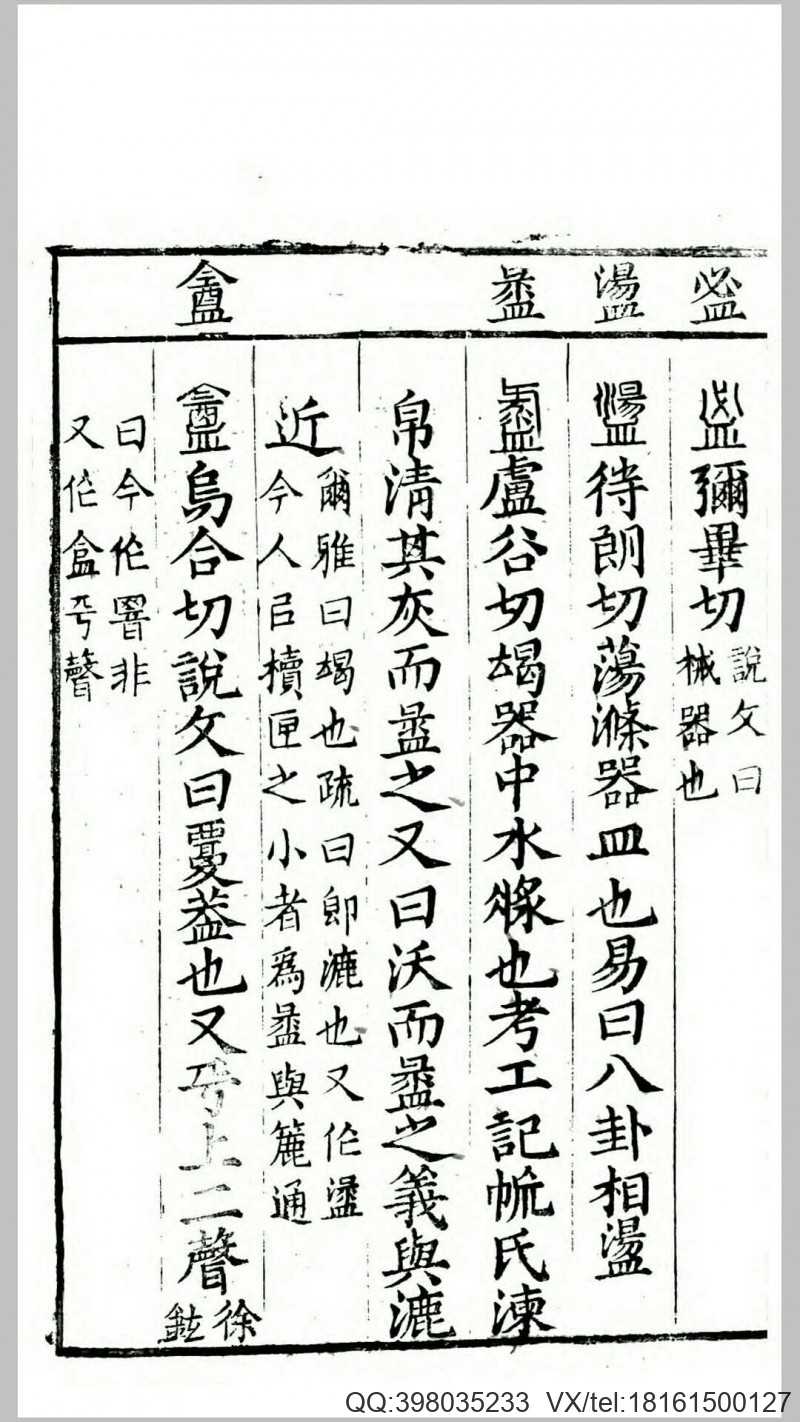 𥁑 盪 盝 盦
𥁑彌畢切
說文曰
械器也
盪待朗切蕩滌器皿也易曰八卦相盪
盝盧谷切竭器中水也考工記㡆氏湅
帛清其灰而盝之又曰沃而盝之義與漉
近
爾雅曰竭也疏曰即漉也又作
今人㠯櫝匣之小者爲盝與簏通
盦烏合切說文曰覆蓋也又平上二聲
徐
鉉
曰今作罯非
又作盒平聲
QQ:398035233 VX/tel:18161500127